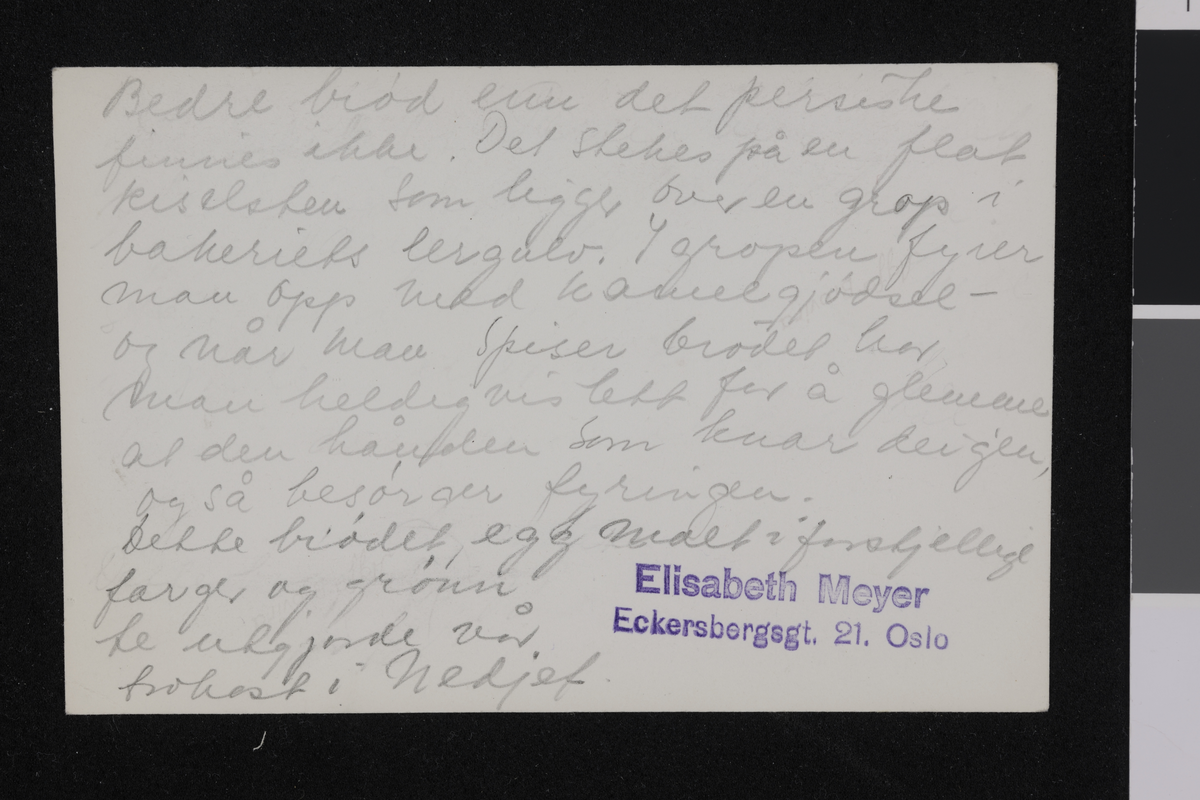 Bedre brød enn det persiske
finnes ikke. Det stekes på en flat
kiselsten som ligger over en grop i
bakeriets lergulv. I gropen fyrer
man opp med kamelgjødsel -
og når man spiser brødet har
man heldigvis lett for å glemme
at den hånden som knar deigen,
også besørger fyringen.
Dette brødet, egg malt i forskjellige
farger og grønn
te utgjorde vår
frokost i Nedjef.
Elisabeth Meyer
Eckersbergsgt. 21. Oslo